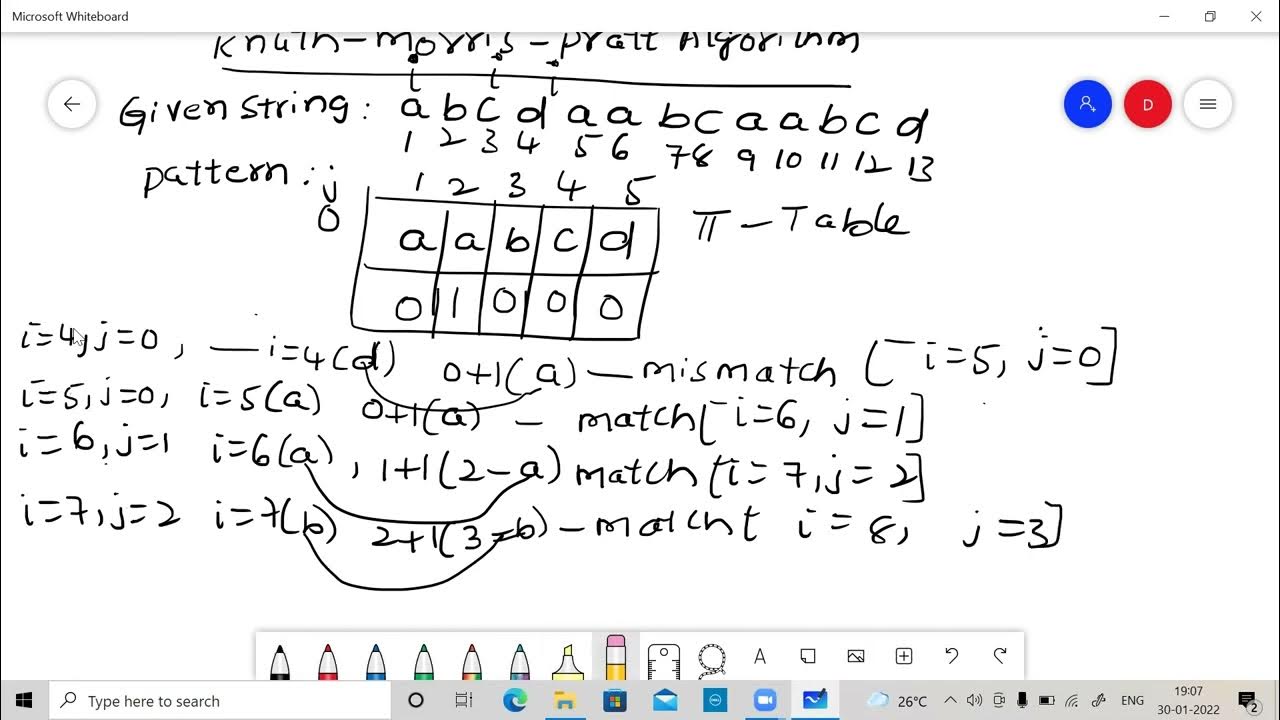 Microsoft Whiteboard
Knuth-Morris-Pratt Algorithm
i i i
Given string: a b c d a a b c a a b c d
1 2 3 4 5 6 7 8 9 10 11 12 13
pattern: j 1 2 3 4 5
0
a a b c d π-Table
0 1 0 0 0
i=4, j=0, — i=4(d) 0+1(a) — mismatch (i=5, j=0]
i=5, j=0, i=5(a) 0+1(a) - match[i=6, j=1]
i=6, j=1 i=6(a), 1+1(2-a) match[i=7, j=2]
i=7, j=2 i=7(b) 2+1(3-b) - match[ i=8, j=3]
D
A
Type here to search
DELL
26°C
ENG
19:07
30-01-2022
2